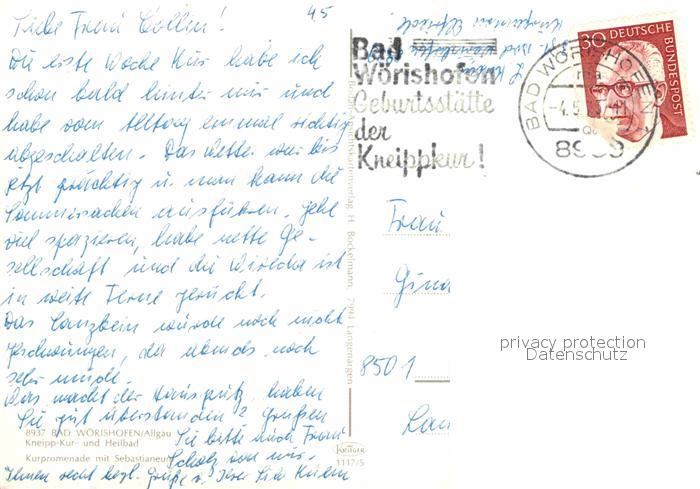 45
Liebe Frau Collin!
Die erste Woche Kur habe ich
schon bald hinter mir und
habe vom Alltag einmal richtig
abgeschalten. Das Wetter war bis
jetzt prächtig u. man kann die
Sommersachen ausführen. Gehe
viel spazieren, habe nette Ge-
sellschaft und die Wirolha ist
in weite Ferne gerückt.
Das Tanzbein wurde noch nicht
geschwungen, da abends noch
sehr müde.
Was macht der Hausputz, haben
Sie gut überstanden? Grüßen
Sie bitte auch Frau
Scholz von mir.
Ihnen recht herzl. Grüße v. Ihrer
8937 BAD WÖRISHOFEN/Allgäu
Kneipp-Kur- und Heilbad
Kurpromenade mit Sebastianeum
KRÜGER
1117/5
Kartenverlag H. Bockelmann, 7994 Langenargen
Bad
Wörishofen
Geburtsstätte
der
Kneippkur!
BAD WÖRISHOFEN
-4.5.
8939
30 DEUTSCHE BUNDESPOST
Frau
Gina
8501
privacy protection
Datenschutz